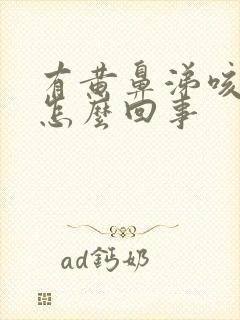 有黄鼻涕咳
怎麼回事
ad鈣奶